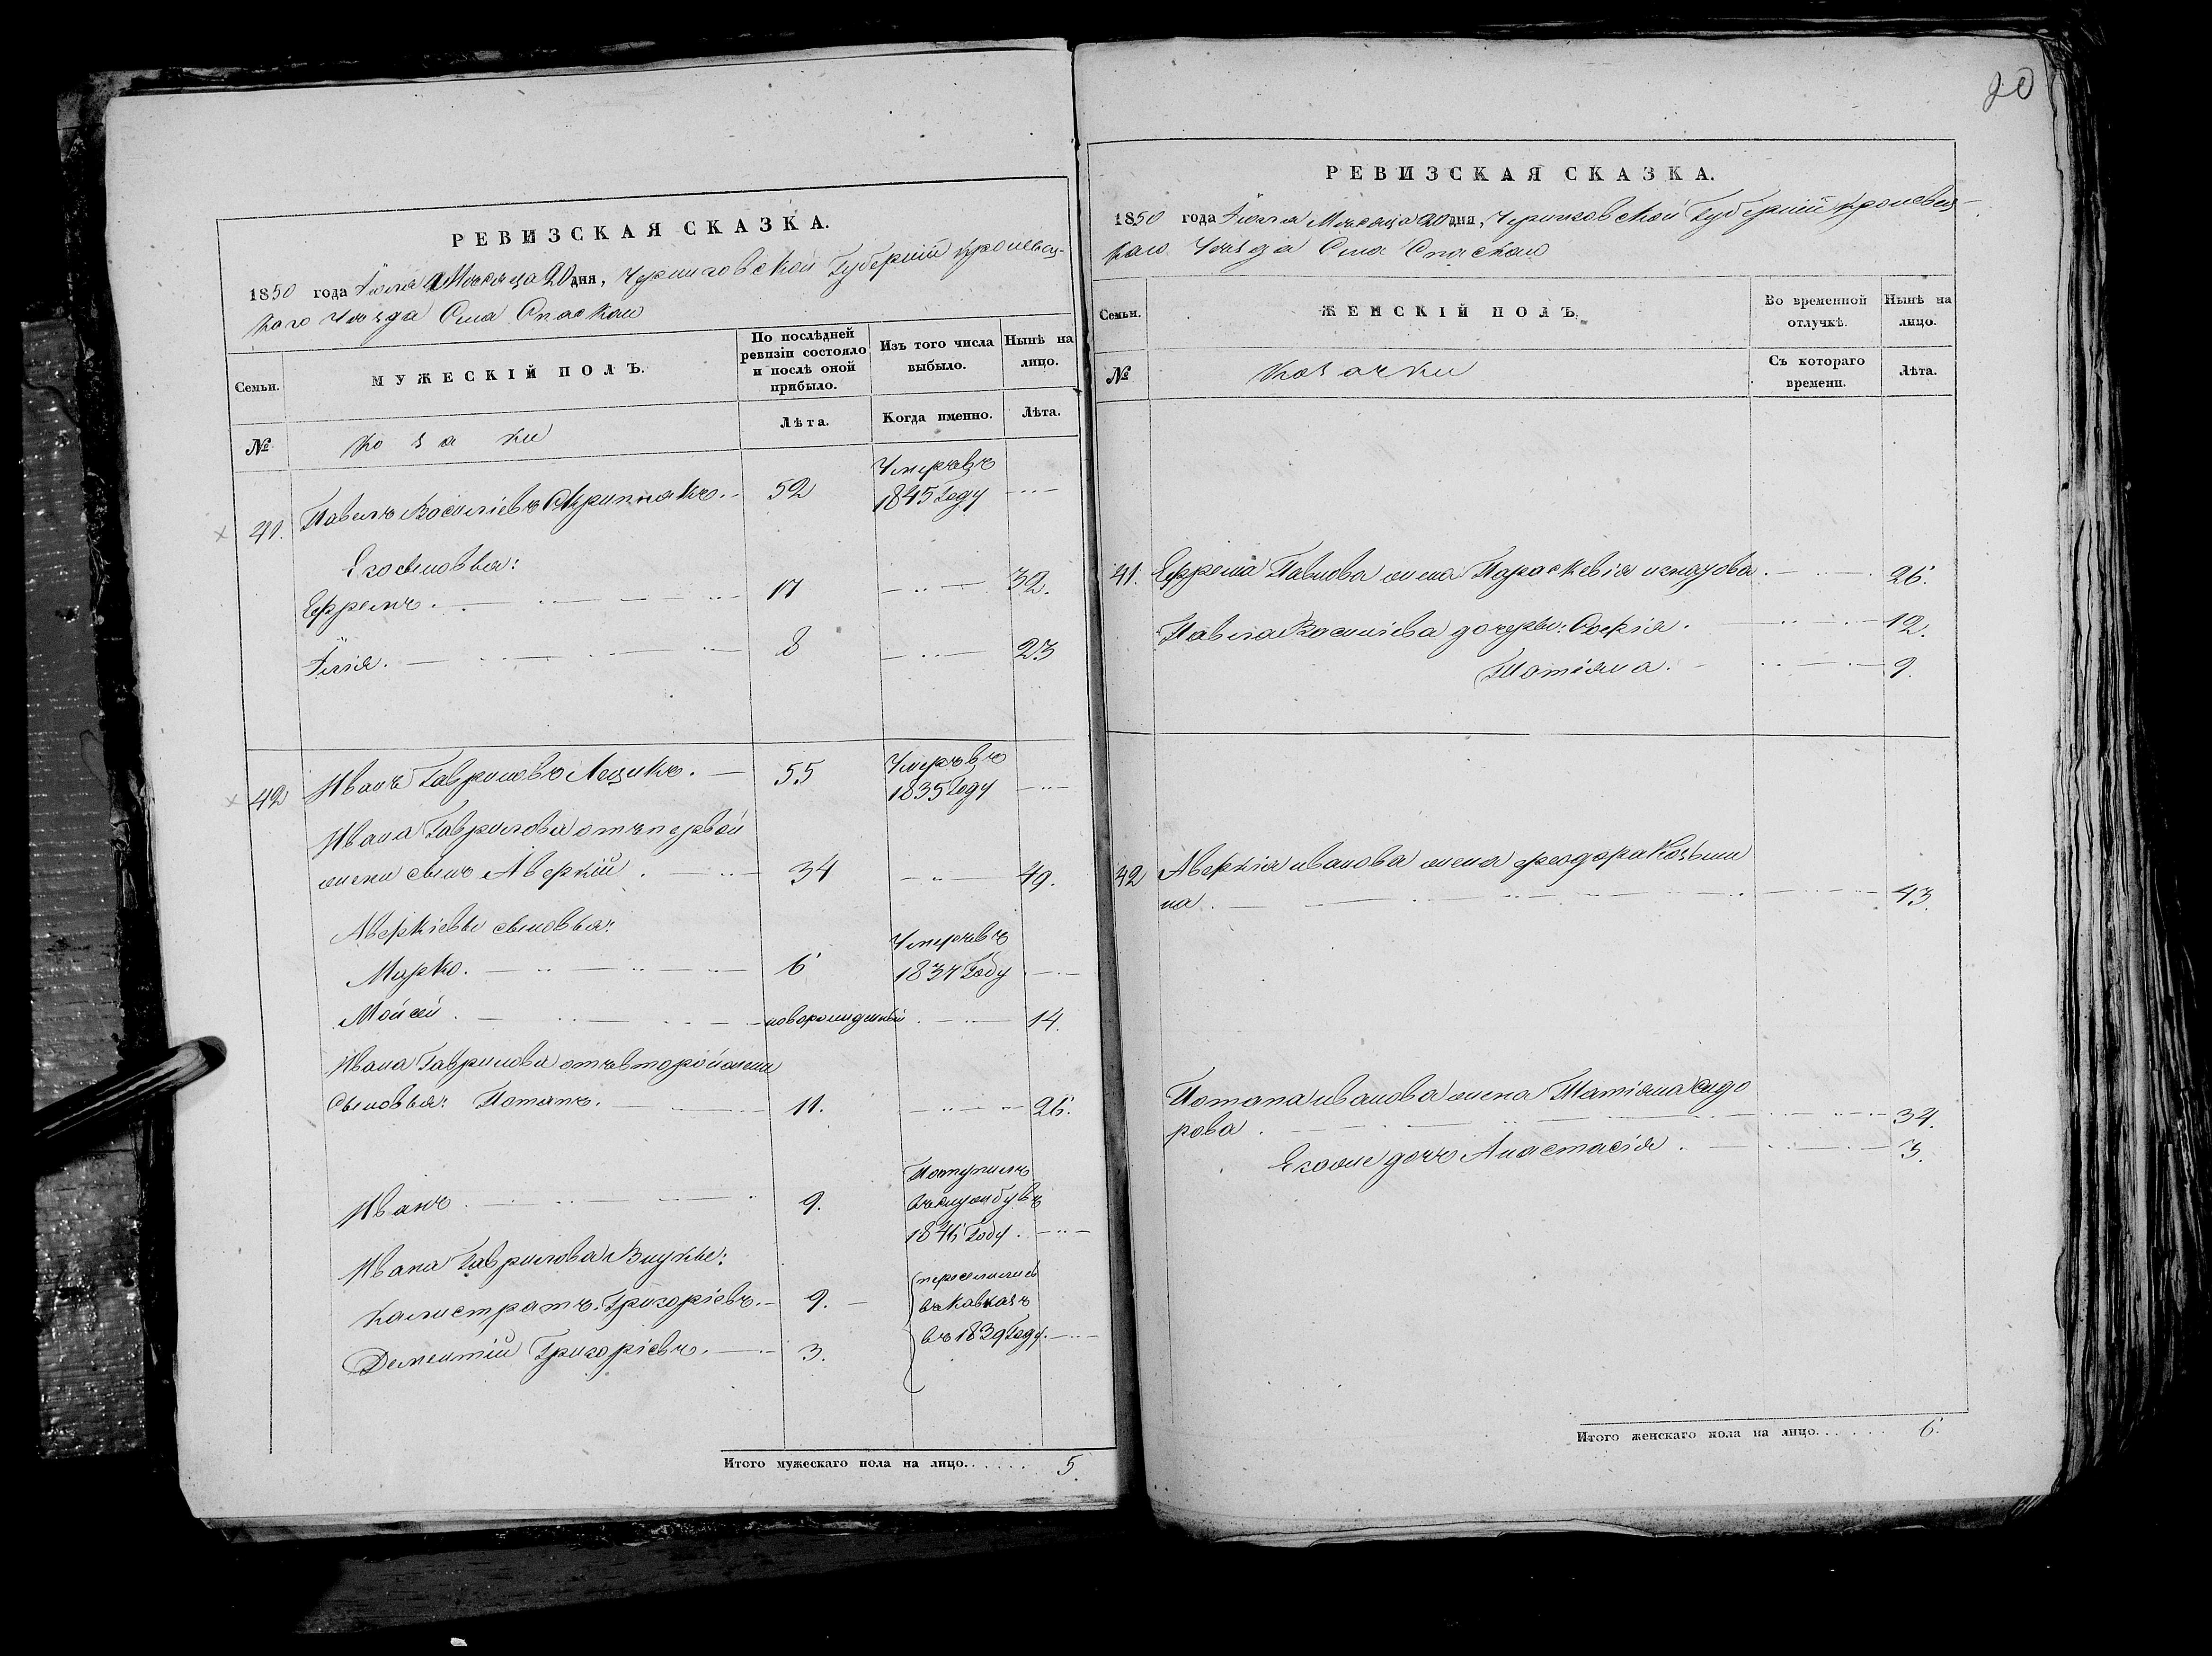 РЕВИЗСКАЯ СКАЗКА.
1850 года Іюля Мѣсяца 20 дня, Черниговской Губерніи Кролевец-
каго Уѣзда Села Спаскаго
Семьи.
МУЖЕСКІЙ ПОЛЪ.
По послѣдней ревизіи состояло и послѣ оной прибыло.
Изъ того числа выбыло.
Нынѣ на лицо.
№
Козаки
Лѣта.
Когда именно.
Лѣта.
41. Павелъ Василіевъ Скрипнякъ. 52 Умеръ въ 1845 Году
Его сыновья:
Ефремъ. 17 32.
Ілія. 8 23
42 Иванъ Гавриловъ Лещикъ. 55 Умеръ въ 1835 Году
Ивана Гаврилова отъ первой
жены сынъ Аверкій. 34 49.
Аверкіевы сыновья:
Марко. 6 Умеръ въ 1837 Году
Мойсей. новорожденный 14.
Ивана Гаврилова отъ второй жены
Сыновья: Потапъ. 11. 26.
Иванъ 9. Поступилъ въ службу въ 1846 Году.
Ивана Гаврилова Внуки:
Калистратъ Григоріевъ. 9.
Дементій Григоріевъ. 3.
переселились
въ Кавказъ
въ 1839 Году.
Итого мужескаго пола на лицо. 5.
20
РЕВИЗСКАЯ СКАЗКА.
1850 года Іюля Мѣсяца 20 дня, Черниговской Губерніи Кролевец-
каго Уѣзда Села Спаскаго
Семьи.
ЖЕНСКІЙ ПОЛЪ.
Во временной отлучкѣ.
Нынѣ на лицо.
№
Козачки
Съ котораго времени.
Лѣта.
41. Ефрема Павлова жена Параскевія 26.
Павла Василіева дочери: Софія. 12.
Татіяна. 9.
42 Аверкія иванова жена феодора Козьми
на. 43.
Потапа иванова жена Татіяна сидо
рова. 34.
Егоже дочь Анастасія. 3.
Итого женскаго пола на лицо. 6.